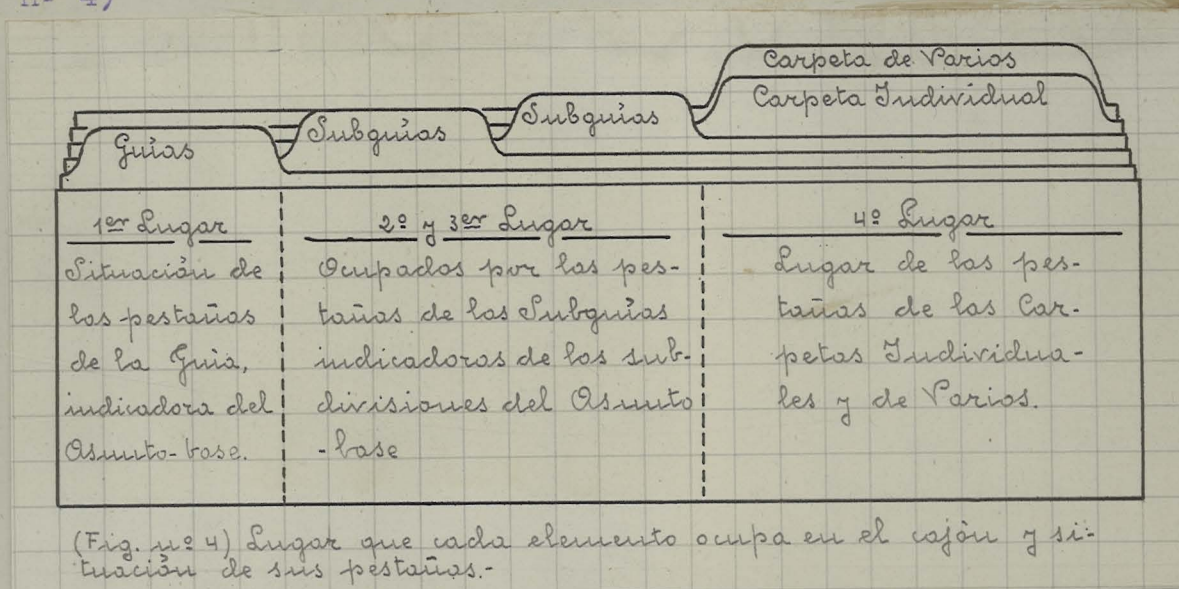 nº 4)
Carpeta de Varios
Carpeta Individual
Subguías
Subguías
Guías
1er Lugar
Situación de
las pestañas
de la Guía,
indicadora del
Asunto-base.
2º y 3er Lugar
Ocupados por las pes-
tañas de las Subguías
indicadoras de las sub-
divisiones del Asunto
-base
4º Lugar
Lugar de las pes-
tañas de las Car-
petas Individua-
les y de Varios.
(Fig. nº 4) Lugar que cada elemento ocupa en el cajón y si-
tuación de sus pestañas.-